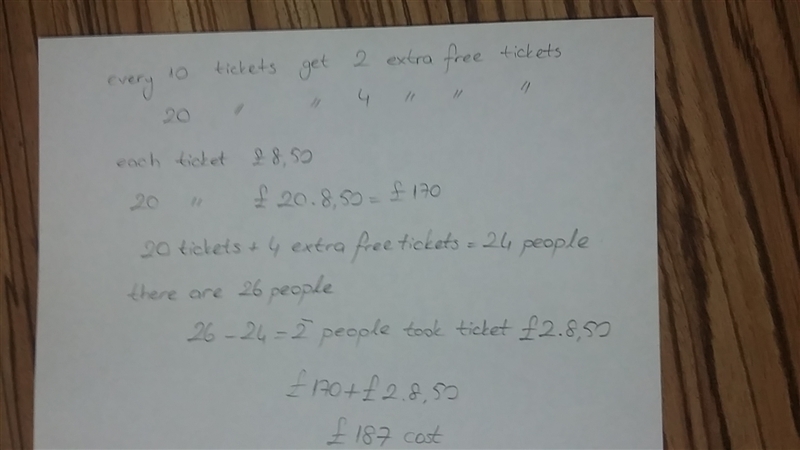 every 10 tickets get 2 extra free tickets
20 " " 4 " " "
each ticket £8,50
20 " £ 20.8,50 = £170
20 tickets + 4 extra free tickets = 24 people
there are 26 people
26 - 24 = 2 people took ticket £2.8,50
£170 + £2.8,50
£187 cost